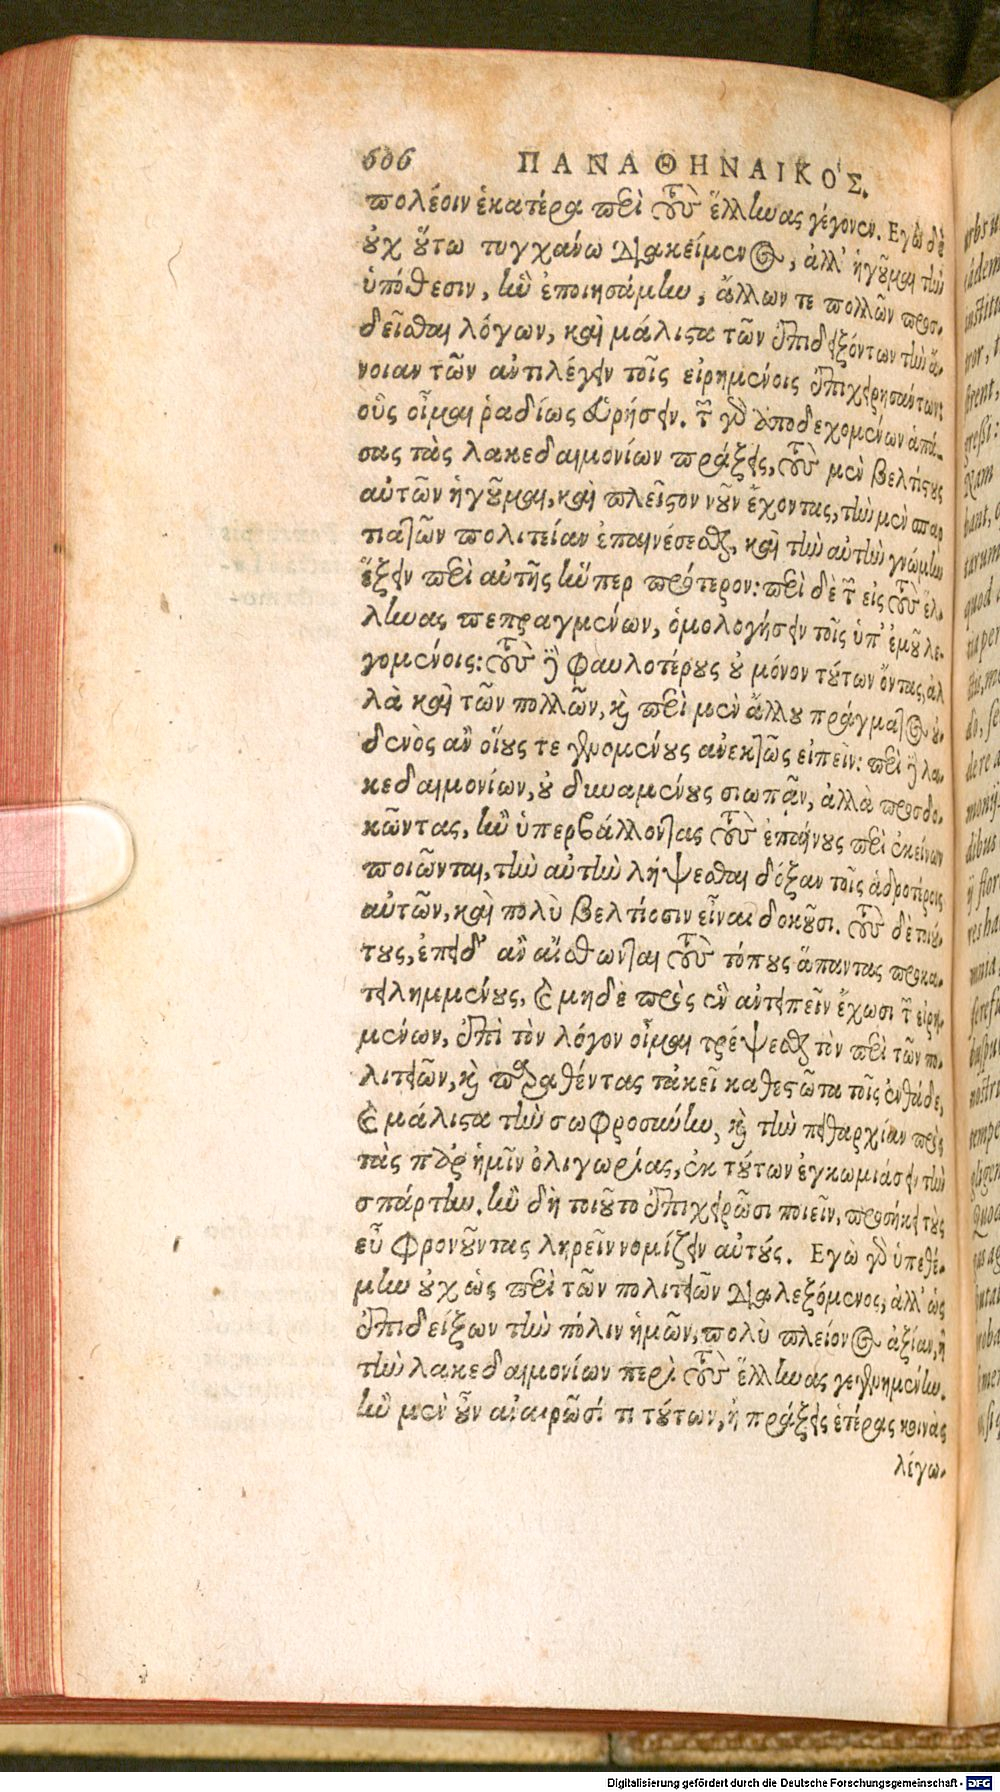 606 ΠΑΝΑΘΗΝΑΙΚΟΣ.
πολέοιν ἑκατέρα περὶ τοὺς ἕλληνας γέγονεν. Εγὼ δὲ
οὐχ οὕτω τυγχάνω διακείμενος, ἀλλ' ἡγοῦμαι τὴν
ὑπόθεσιν, ἣν ἐποιησάμην, ἄλλων τε πολλῶν προσ-
δεῖσθαι λόγων, καὶ μάλιστα τῶν ἐπιδειξόντων τὴν ἄ-
νοιαν τῶν ἀντιλέγειν τοῖς εἰρημένοις ἐπιχειρησάντων:
οὓς οἶμαι ῥαδίως εὑρήσειν. τῶν γὰρ ἀποδεχομένων ἁπά-
σας τὰς λακεδαιμονίων πράξεις, τοὺς μὲν βελτίστους
αὐτῶν ἡγοῦμαι, καὶ πλεῖστον νοῦν ἔχοντας, τὴν μὲν σπαρ
τιατῶν πολιτείαν ἐπαινέσεσθαι, καὶ τὴν αὐτὴν γνώμην
ἕξειν περὶ αὐτῆς ἥνπερ πρότερον: περὶ δὲ τῶν εἰς τοὺς ἕλ-
ληνας πεπραγμένων, ὁμολογήσειν τοῖς ὑπ' ἐμοῦ λε-
γομένοις: τοὺς δὲ φαυλοτέρους οὐ μόνον τούτων ὄντας, ἀλ
λὰ καὶ τῶν πολλῶν, καὶ περὶ μὲν ἄλλου πράγματος οὐ-
δενὸς ἂν οἵους τε γενομένους ἀνεκτῶς εἰπεῖν: περὶ δὲ λα-
κεδαιμονίων, οὐ δυναμένους σιωπᾶν, ἀλλὰ προσδο-
κῶντας, ἢν ὑπερβάλλοντας τοὺς ἐπαίνους περὶ ἐκείνων
ποιῶνται, τὴν αὐτὴν λήψεσθαι δόξαν τοῖς ἁδροτέροις
αὐτῶν, καὶ πολὺ βελτίοσιν εἶναι δοκοῦσι. τοὺς δὲ τοιού-
τους, ἐπειδ' ἂν αἴσθωνται τοὺς τόπους ἅπαντας προκα-
τειλημμένους, καὶ μηδὲ πρὸς ἓν ἀντειπεῖν ἔχωσι τῶν εἰρη-
μένων, ἐπὶ τὸν λόγον οἶμαι τρέψεσθαι τὸν περὶ τῶν πο-
λιτειῶν, καὶ παραθέντας τἀκεῖ καθεστῶτα τοῖς ἐνθάδε,
καὶ μάλιστα τὴν σωφροσύνην, καὶ τὴν πειθαρχίαν πρὸς
τὰς παρ' ἡμῖν ὀλιγωρίας, ἐκ τούτων ἐγκωμιάσειν τὴν
σπάρτην. ἢν δὴ τοιοῦτο ἐπιχειρῶσι ποιεῖν, προσήκει τοὺς
εὖ φρονοῦντας ληρεῖν νομίζειν αὐτούς. Εγὼ γὰρ ὑπεθέ-
μην οὐχ ὡς περὶ τῶν πολιτειῶν διαλεξόμενος, ἀλλ' ὡς
ἐπιδείξων τὴν πόλιν ἡμῶν, πολὺ πλείονος ἀξίαν, ἢ
τὴν λακεδαιμονίων περὶ τοὺς ἕλληνας γεγενημένην.
ἢν μὲν οὖν ἀναιρῶσί τι τούτων, ἢ πράξεις ἑτέρας κοινὰς
λέγω-
Digitalisierung gefördert durch die Deutsche Forschungsgemeinschaft - DFG